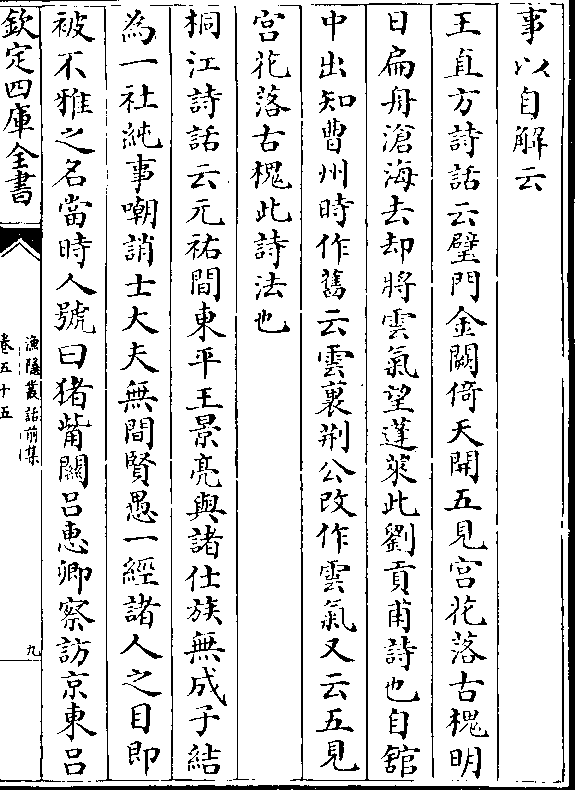 事以自解云
王直方詩話云璧門金闕倚天開五見宫花落古槐明
日扁舟滄海去却將雲氣望蓬萊此劉貢甫詩也自舘
中出知曹州時作舊云雲裏荆公改作雲氣又云五見
宫花落古槐此詩法也
桐江詩話云元祐間東平王景亮與諸仕族無成子結
為一社純事嘲誚士大夫無間賢愚一經諸人之目即
被不雅之名當時人號曰猪觜關吕惠卿察訪京東吕
欽定四庫全書
漁隱叢話前集
卷五十五
九